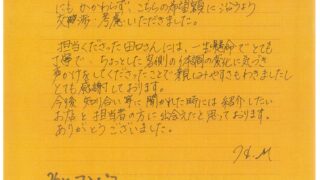 にも かかわらず、こちらの希望額に沿うよう
交渉・考慮いただきました。
担当くださった田口さんには、一生懸命でとても
丁寧で、ちょっとした名刺の体調の変化に気づき
声かけをしてくださったことで親しみやすさもわきましたし
とても感謝しております。
今後 知り合い等に聞かれた時には紹介したい
お店と担当者の方に出会えたと思っております。
ありがとうございました。